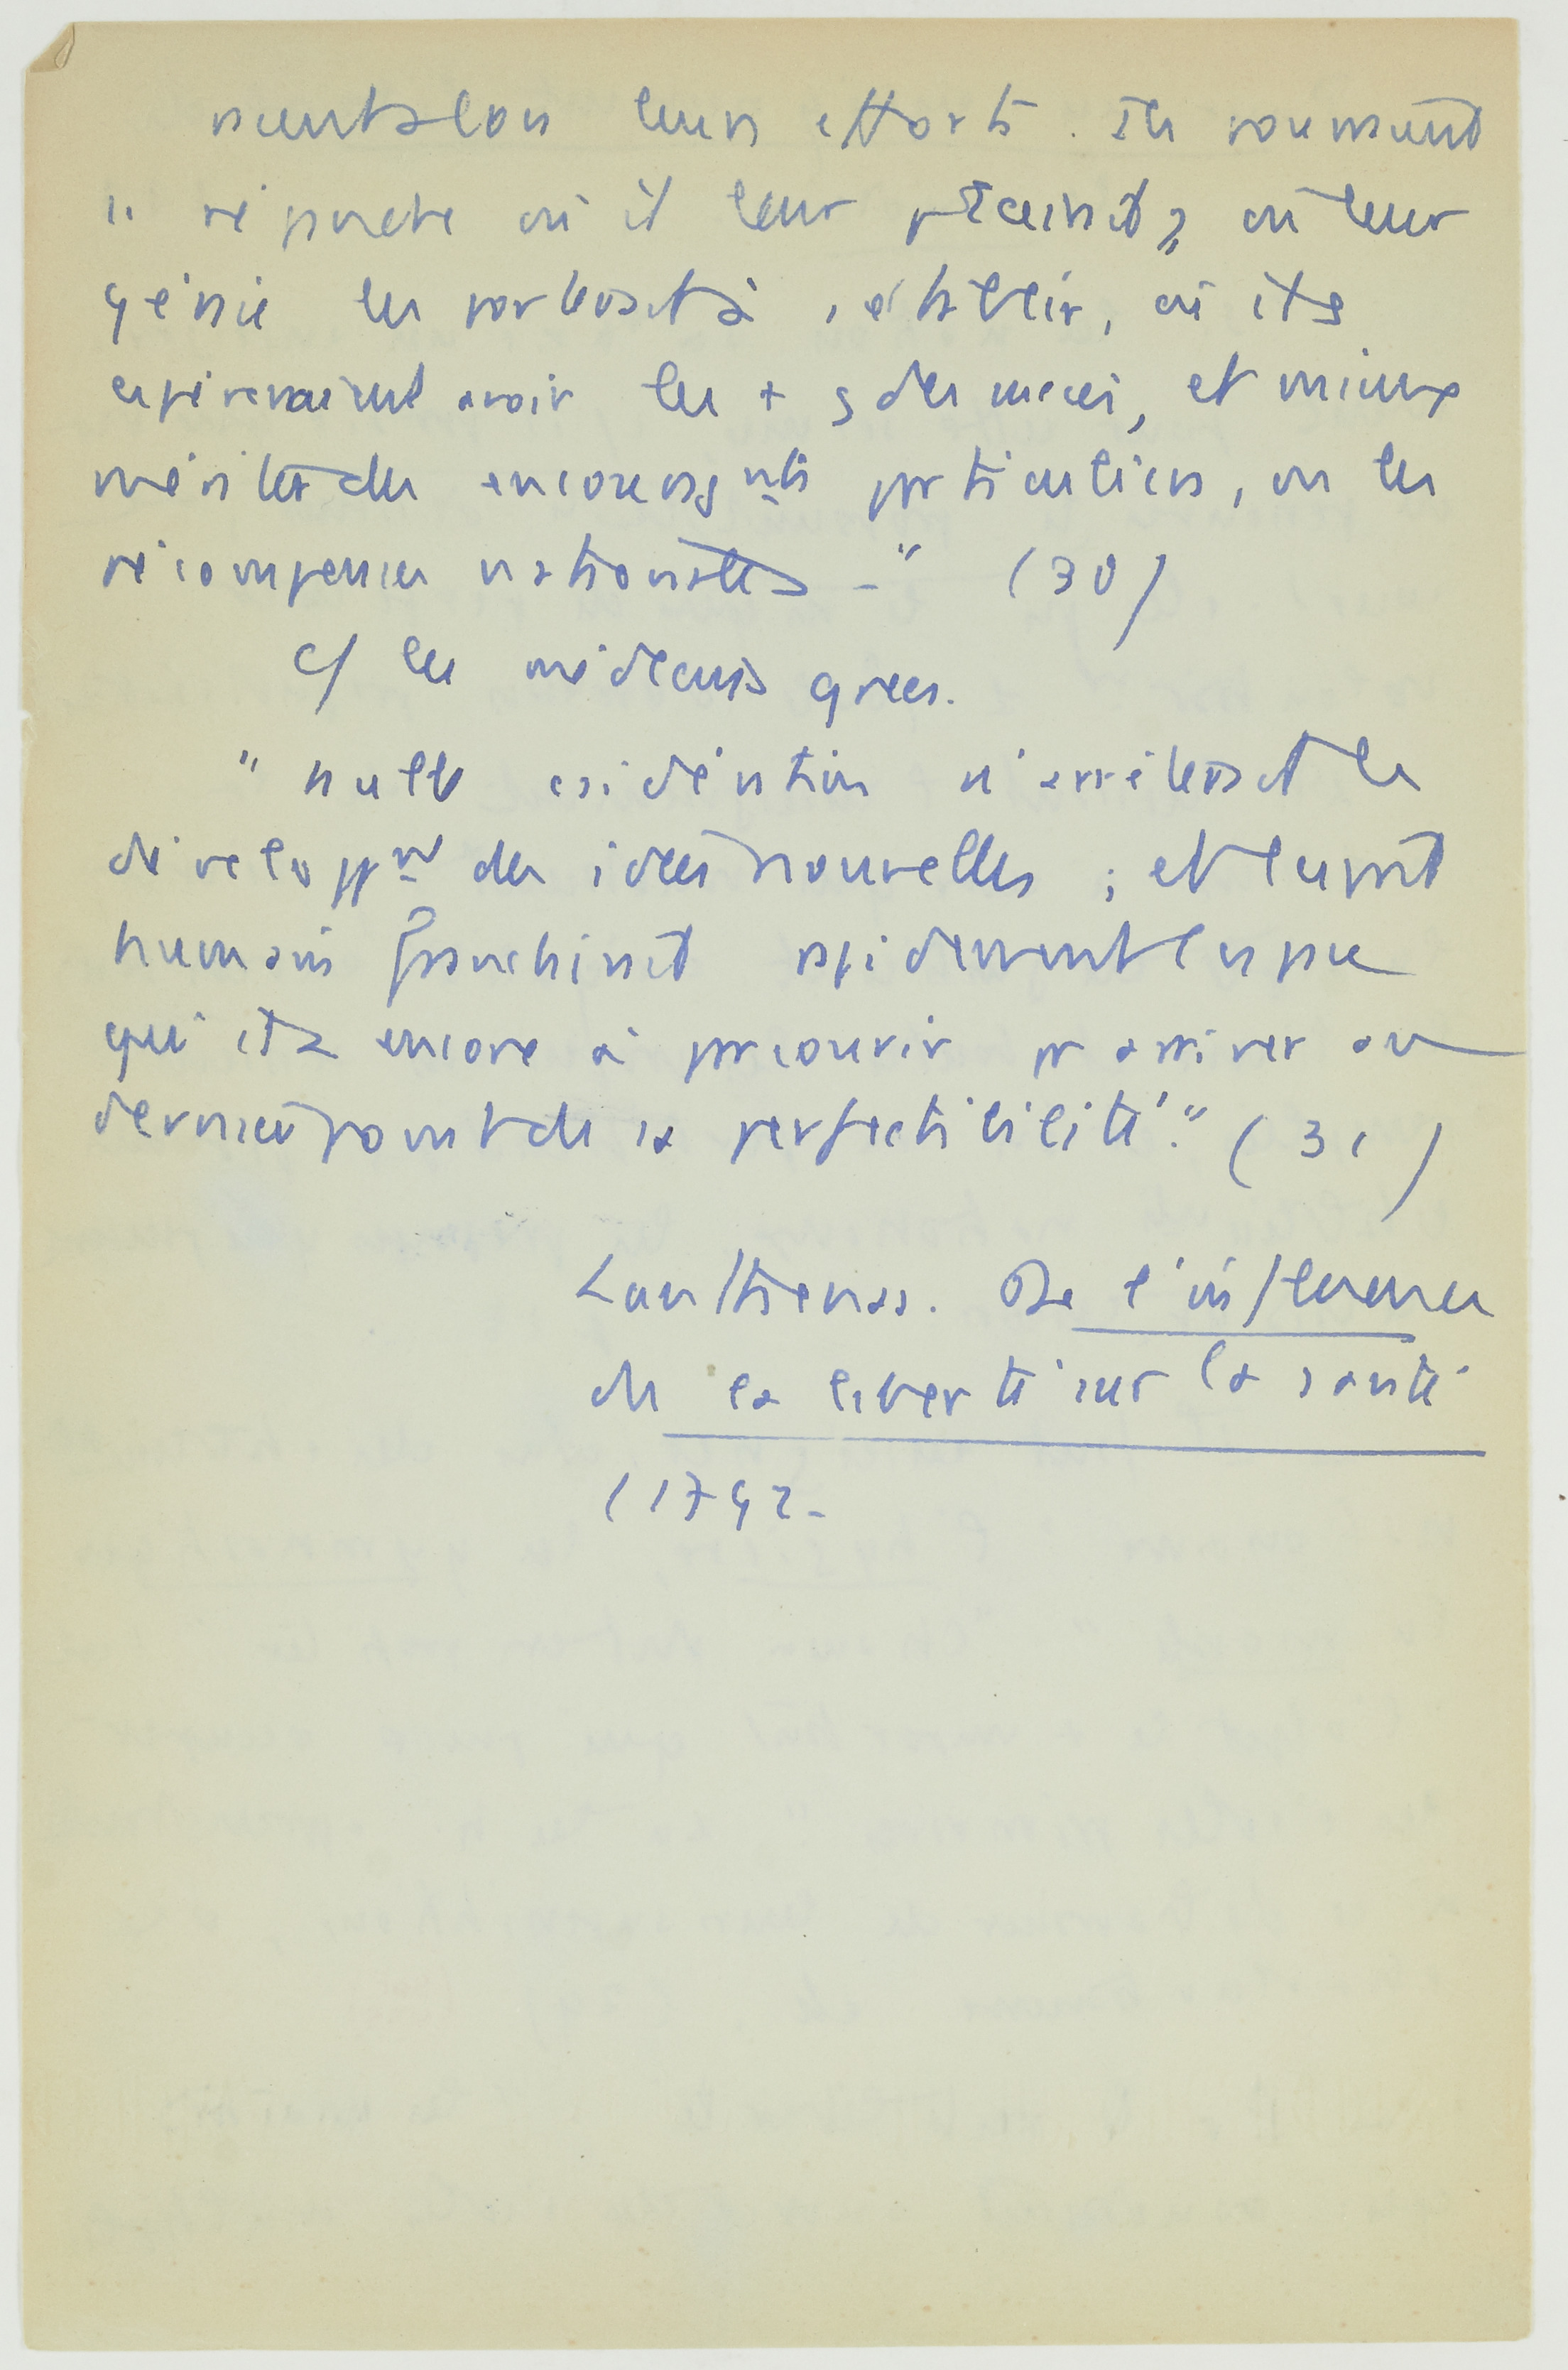 seront alors leurs efforts. Ils pourront
" se porter où il leur plairait, où leur
génie les porterait à s'établir, où ils
espéreraient avoir les + gdes succès, et mieux
mériter des encouragmts particuliers, ou les
récompenses nationales - " (30)
c/ les médecins grecs.
" nulle considération n'arrêterait le
développmt des idées nouvelles ; et l'esprit
humain franchirait rapidement l'espace
qui il a encore à parcourir pr arriver au
dernier point de sa perfectibilité." (31)
Lanthenas. De l'influence
de la liberté sur la santé
(1792-